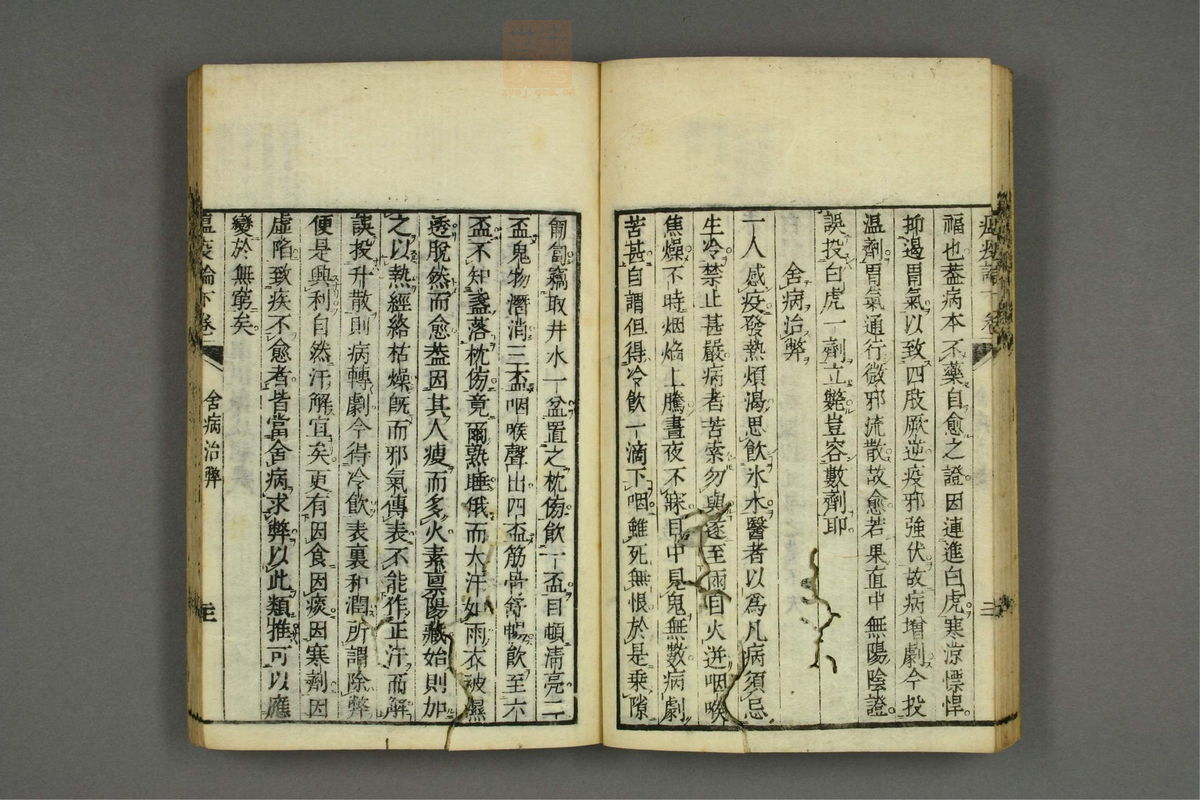 福也蓋病本不藥自愈之證因連進白虎寒涼慓悍
抑遏胃氣以致四肢厥逆疫邪強伏故病增劇今投
温劑胃氣通行微邪流散故愈若果直中無陽陰證
誤投白虎一劑立斃豈容數劑耶
舍病治弊
一人感疫發熱煩渴思飲氷水醫者以為凡病須忌
生冷禁止甚嚴病者苦索勿與遂至兩目火迸咽喉
焦燥不時烟焰上騰晝夜不寐目中見鬼無數病劇
苦甚自謂但得冷飲一滴下咽雖死無恨於是乗隙
匍匐竊取井水一盆置之枕傍飲一盃目頓清亮二
盃鬼物潛消三盃咽喉聲出四盃筋骨舒暢飲至六
盃不知盞落枕傍竟爾熟睡俄而大汗如雨衣被濕
透脫然而愈蓋因其人瘦而多火素禀陽藏始則加
之以熱經絡枯燥既而邪氣傳表不能作正汗而解
誤投升散則病轉劇今得冷飲表裏和潤所謂除弊
便是興利自然汗解宜矣更有因食因痰因寒劑因
虛陷致疾不愈者皆當舍病求弊以此類推可以應
變於無窮矣
瘟疫論下卷
舍病治弊